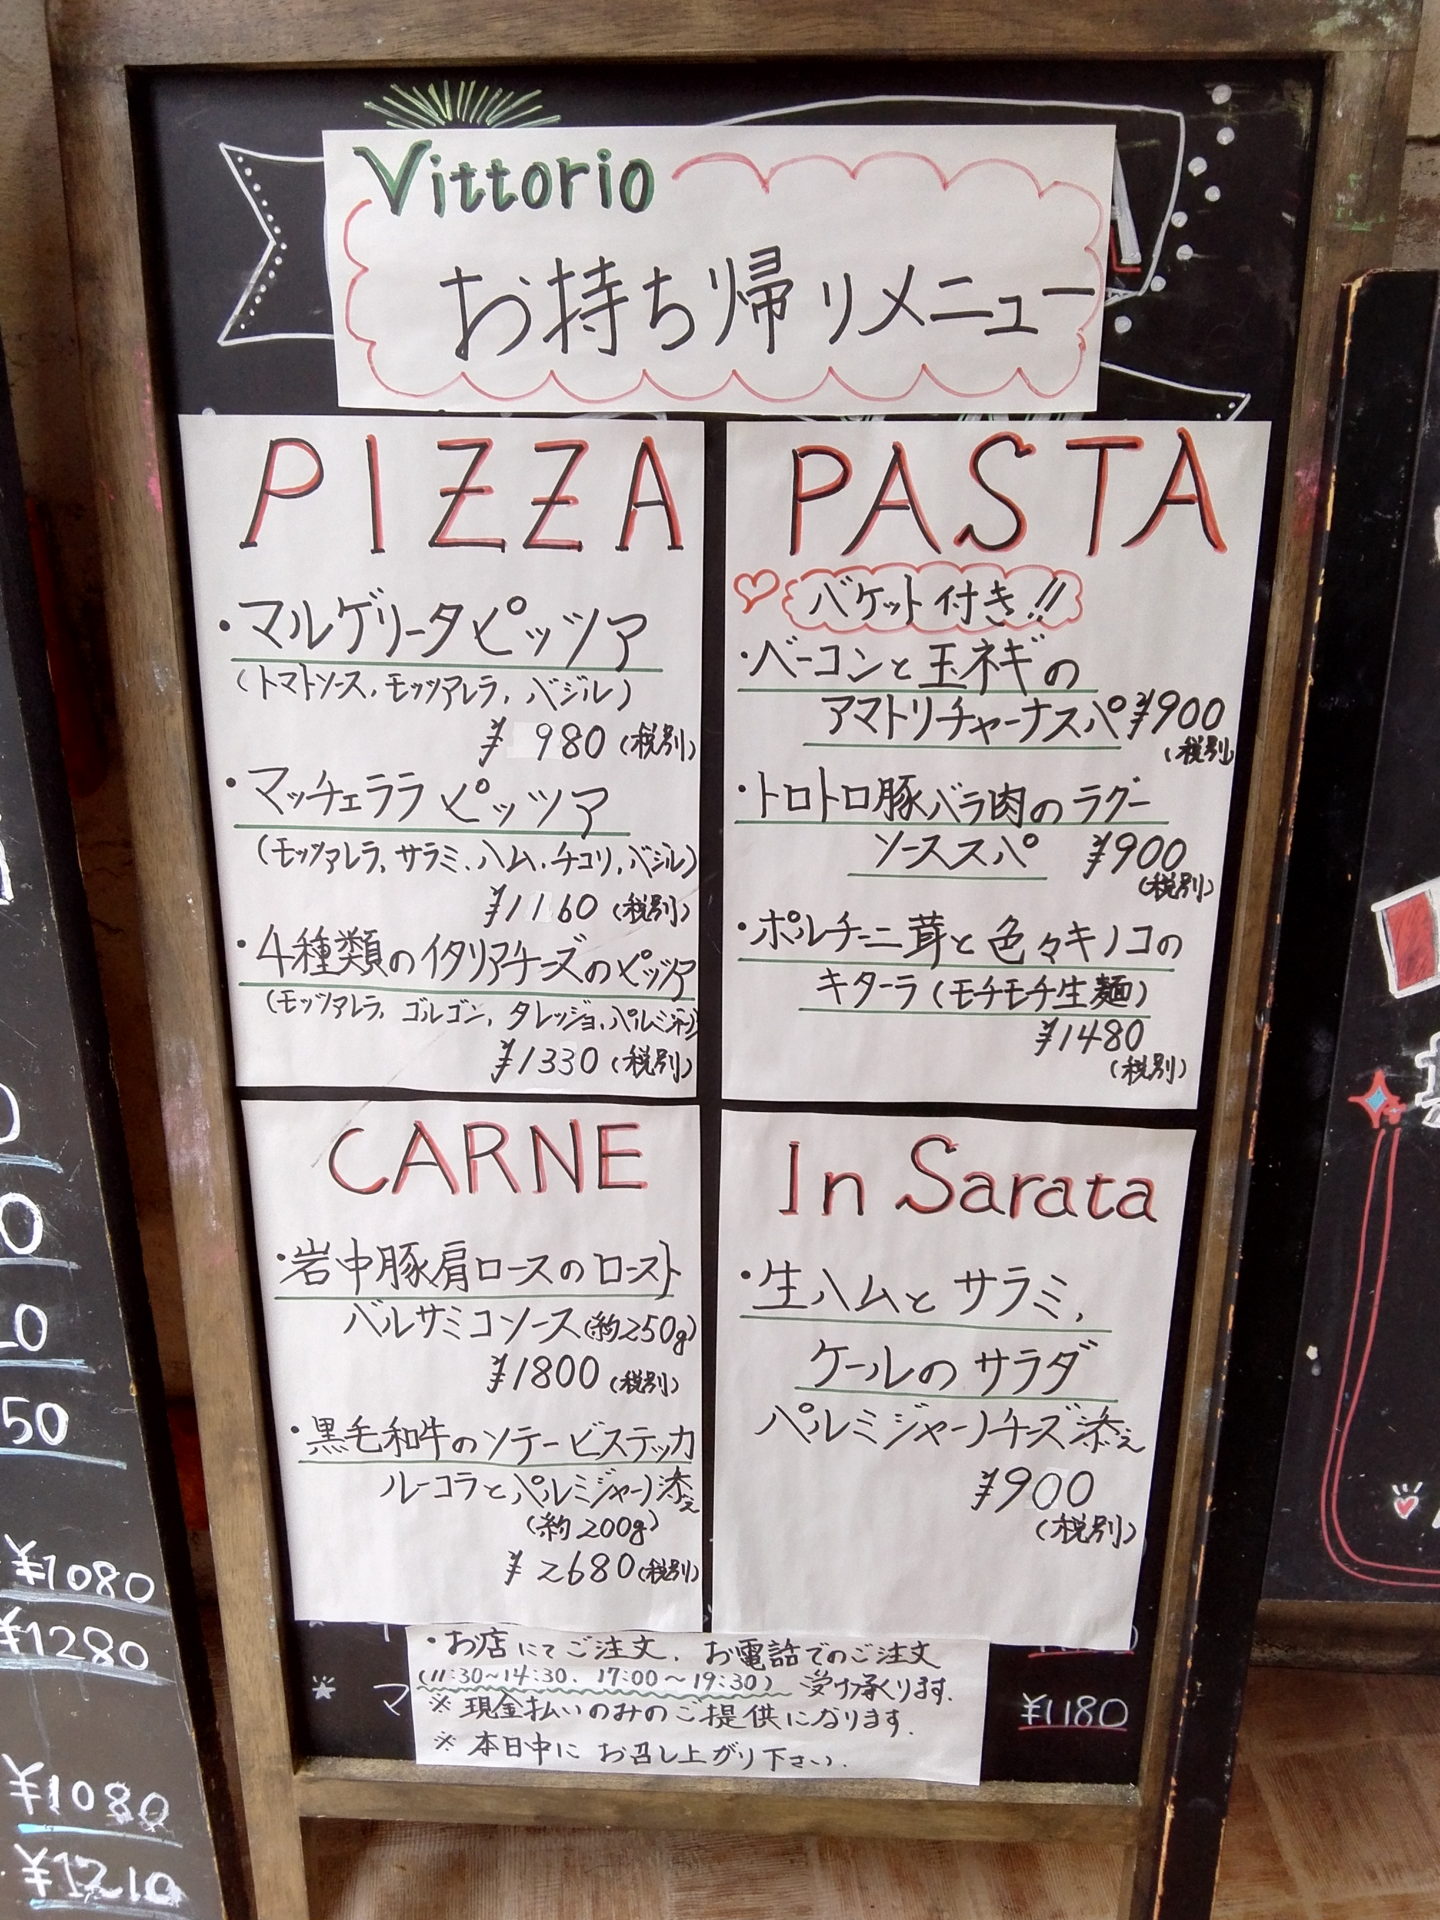 Vittorio
お持ち帰リメニュー
PIZZA
・マルゲリータピッツァ
(トマトソース、モッツアレラ、バジル)
¥980(税別)
・マッチェララピッツァ
(モッツアレラ、サラミ、ハム、チコリ、バジル)
¥1160(税別)
・4種類のイタリアチーズのピッツァ
(モッツアレラ、ゴルゴン、タレッジョ、パルミ
¥1330(税別)
PASTA
バケット付き!!
・ベーコンと玉ネギの
アマトリチャーナスパ¥900
(税別)
・トロトロ豚バラ肉のラグー
ソーススパ ¥900
(税別)
・ポルチーニ茸と色々キノコの
キターラ(モチモチ生麺)
¥1480
(税別)
CARNE
・岩中豚肩ロースのロースト
バルサミコソース(約250g)
¥1800(税別)
・黒毛和牛のソテービステッカ
ルーコラとパルミジャーノ添え
(約200g)
¥2680(税別)
In Sarata
・生ハムとサラミ、
ケールのサラダ
パルミジャーノチーズ添え
¥900
(税別)
・お店にてご注文、お電話でのご注文
(11:30~14:30、17:00~19:30)受け承ります。
※現金払いのみのご提供になります。
※本日中にお召し上がり下さい。
マ
¥1180
50
¥1080
¥1280
¥1080
¥1210